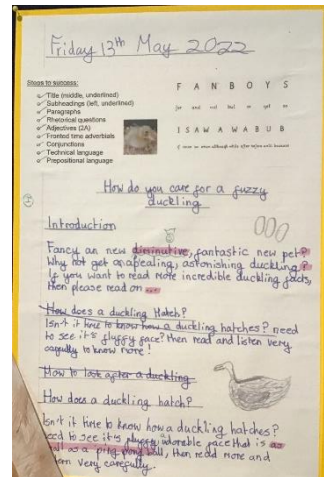 Friday 13th May 2022
Steps to success:
Title (middle, underlined)
Subheadings (left, underlined)
Paragraphs
Rhetorical questions
Adjectives (2A)
Fronted time adverbials
Conjunctions
Technical language
Prepositional language
F A N B O Y S
for and nor but or yet so
I S A W A W A B U B
if since as when although while after before until because
How do you care for a fuzzy
duckling
Introduction
Fancy an new diminutive, fantastic new pet?
Why not get an apealing, astonishing duckling?
If you want to read more incredible duckling facts,
then please read on
How does a duckling Hatch?
Isn't it time to know how a duckling hatches? need
to see it's fluffy face? then read and listen very
carfully to know more!
How to look after a duckling
How does a duckling hatch?
Isn't it time to know how a duckling hatches?
need to see it's fluffy, adorable face that is as
small as a ping pong ball, then read more and
very carefully.